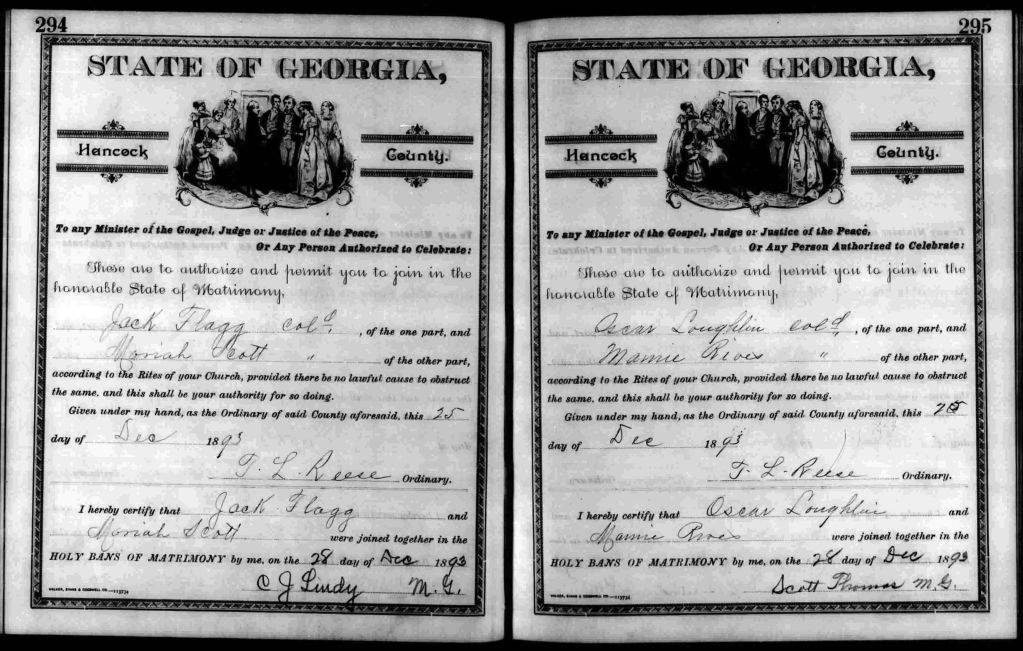 294
STATE OF GEORGIA,
Hancock County.
To any Minister of the Gospel, Judge or Justice of the Peace,
Or Any Person Authorized to Celebrate:
These are to authorize and permit you to join in the
honorable State of Matrimony,
Jack Flagg col^d. , of the one part, and
Moriah Scott " of the other part,
according to the Rites of your Church, provided there be no lawful cause to obstruct
the same, and this shall be your authority for so doing.
Given under my hand, as the Ordinary of said County aforesaid, this 25
day of Dec 1893
T. L. Reese Ordinary.
I hereby certify that Jack Flagg and
Moriah Scott were joined together in the
HOLY BANS OF MATRIMONY by me, on the 28 day of Dec 1893
C J Lindy M. G.
WALKER, EVANS & COGSWELL CO.—113734
295
STATE OF GEORGIA,
Hancock County.
To any Minister of the Gospel, Judge or Justice of the Peace,
Or Any Person Authorized to Celebrate:
These are to authorize and permit you to join in the
honorable State of Matrimony,
Oscar Loughlin col^d , of the one part, and
Mannie Rives " of the other part,
according to the Rites of your Church, provided there be no lawful cause to obstruct
the same, and this shall be your authority for so doing.
Given under my hand, as the Ordinary of said County aforesaid, this 25
day of Dec 1893
T. L. Reese Ordinary.
I hereby certify that Oscar Loughlin and
Mannie Rives were joined together in the
HOLY BANS OF MATRIMONY by me, on the 28 day of Dec 1893
Scott Thomas M. G.
WALKER, EVANS & COGSWELL CO.—113734